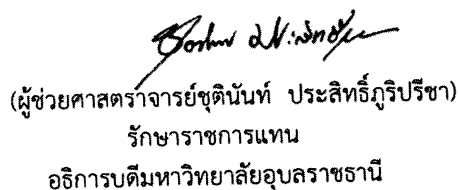 (ผู้ช่วยศาสตราจารย์ชุตินันท์ ประสิทธิ์ภูริปรีชา)
รักษาราชการแทน
อธิการบดีมหาวิทยาลัยอุบลราชธานี